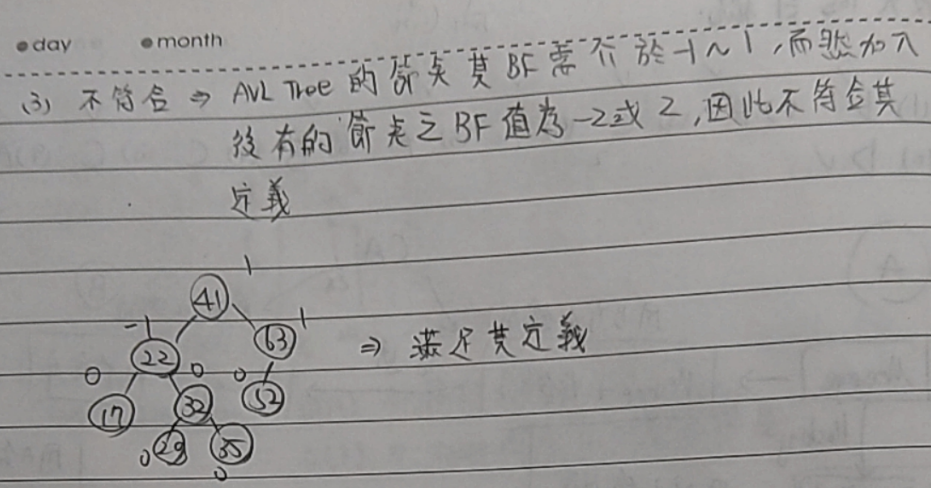 day month
(3) 不符合 ⇒ AVL Tree 的節點其BF需介於-1~1,而然加入
後有的節點之BF值為-2或2,因此不符合其
定義
1
41
-1 1
22 63 ⇒ 滿足其定義
0 0 0
17 32 52
0 29 35
0